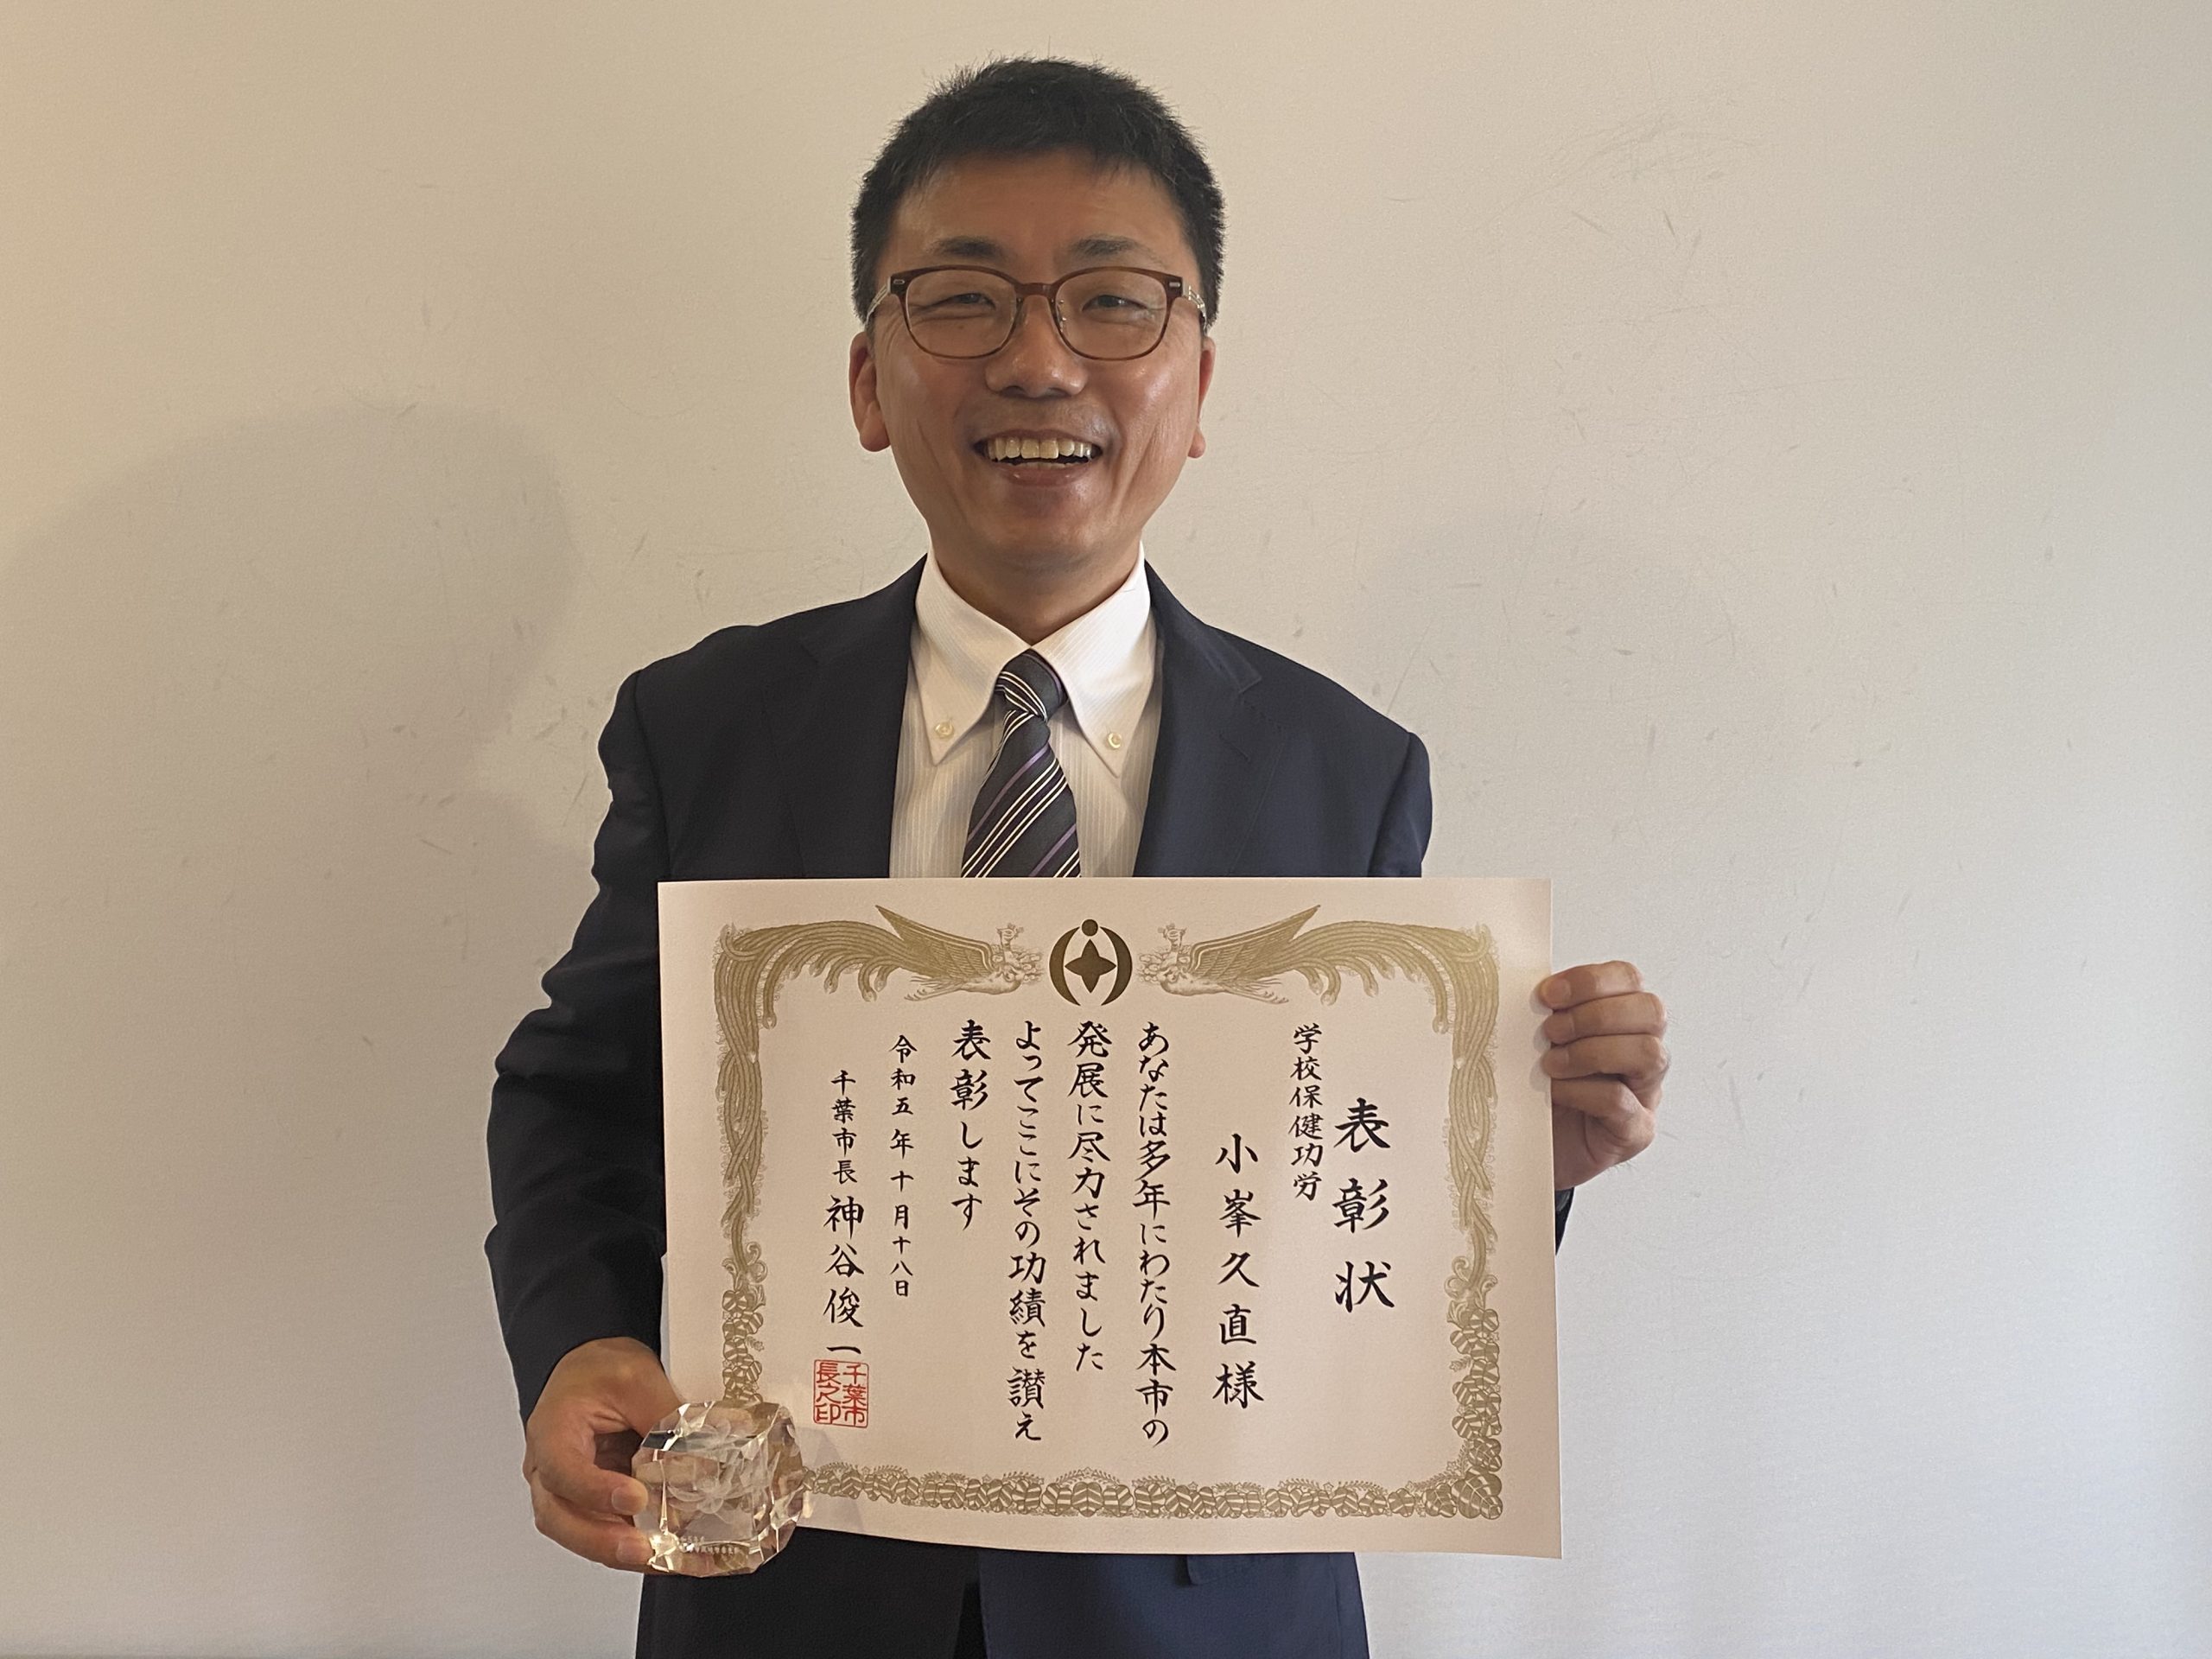 表彰状
学校保健功労
小峯久直様
あなたは多年にわたり本市の
発展に尽力されました
よってここにその功績を讃え
表彰します
令和五年十月十八日
千葉市長 神谷俊一
千葉市
長之印